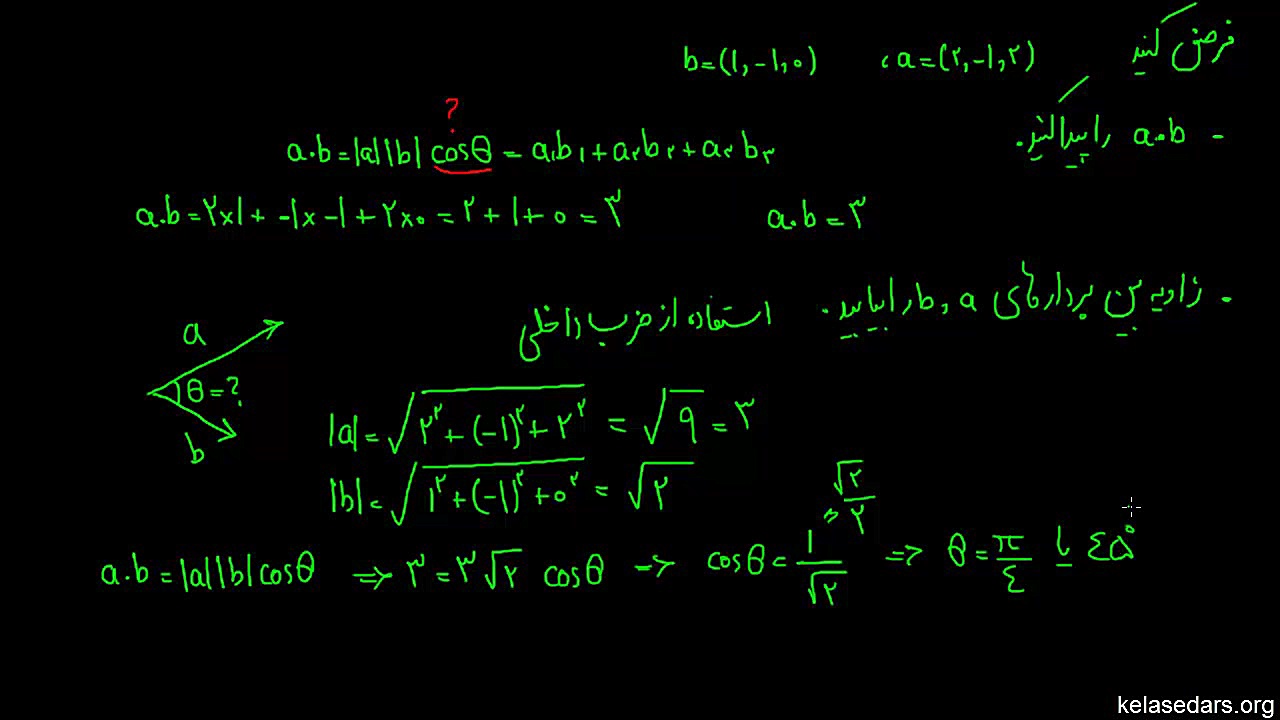 فرض کنید a=(۲,-۱,۲) ، b=(۱,-۱,۰)
- a.b را پیدا کنید.
?
a.b=|a||b| cosθ = a₁b₁+a₂b₂+a₃b₃
a.b=۲×۱+ -۱×-۱+۲×۰=۲+۱+۰=۳ a.b=۳
. زاویه بین بردارهای a و b را بیابید. استفاده از ضرب داخلی
a
θ=?
b
|a|=√(۲²+(-۱)²+۲²) = √۹=۳
|b|=√(۱²+(-۱)²+۰²) = √۲
a.b=|a||b|cosθ => ۳=۳√۲ cosθ -> cosθ=۱/√۲ = √۲/۲ => θ=π/۴ یا ۴۵°
kelasedars.org